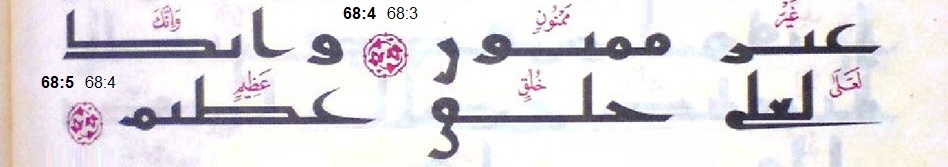 68:4 68:3
غَيْرَ مَمْنُونٍ وَإِنَّكَ
غير ممنون وانك
68:5 68:4
لَعَلَىٰ خُلُقٍ عَظِيمٍ
لعلى خلق عظيم